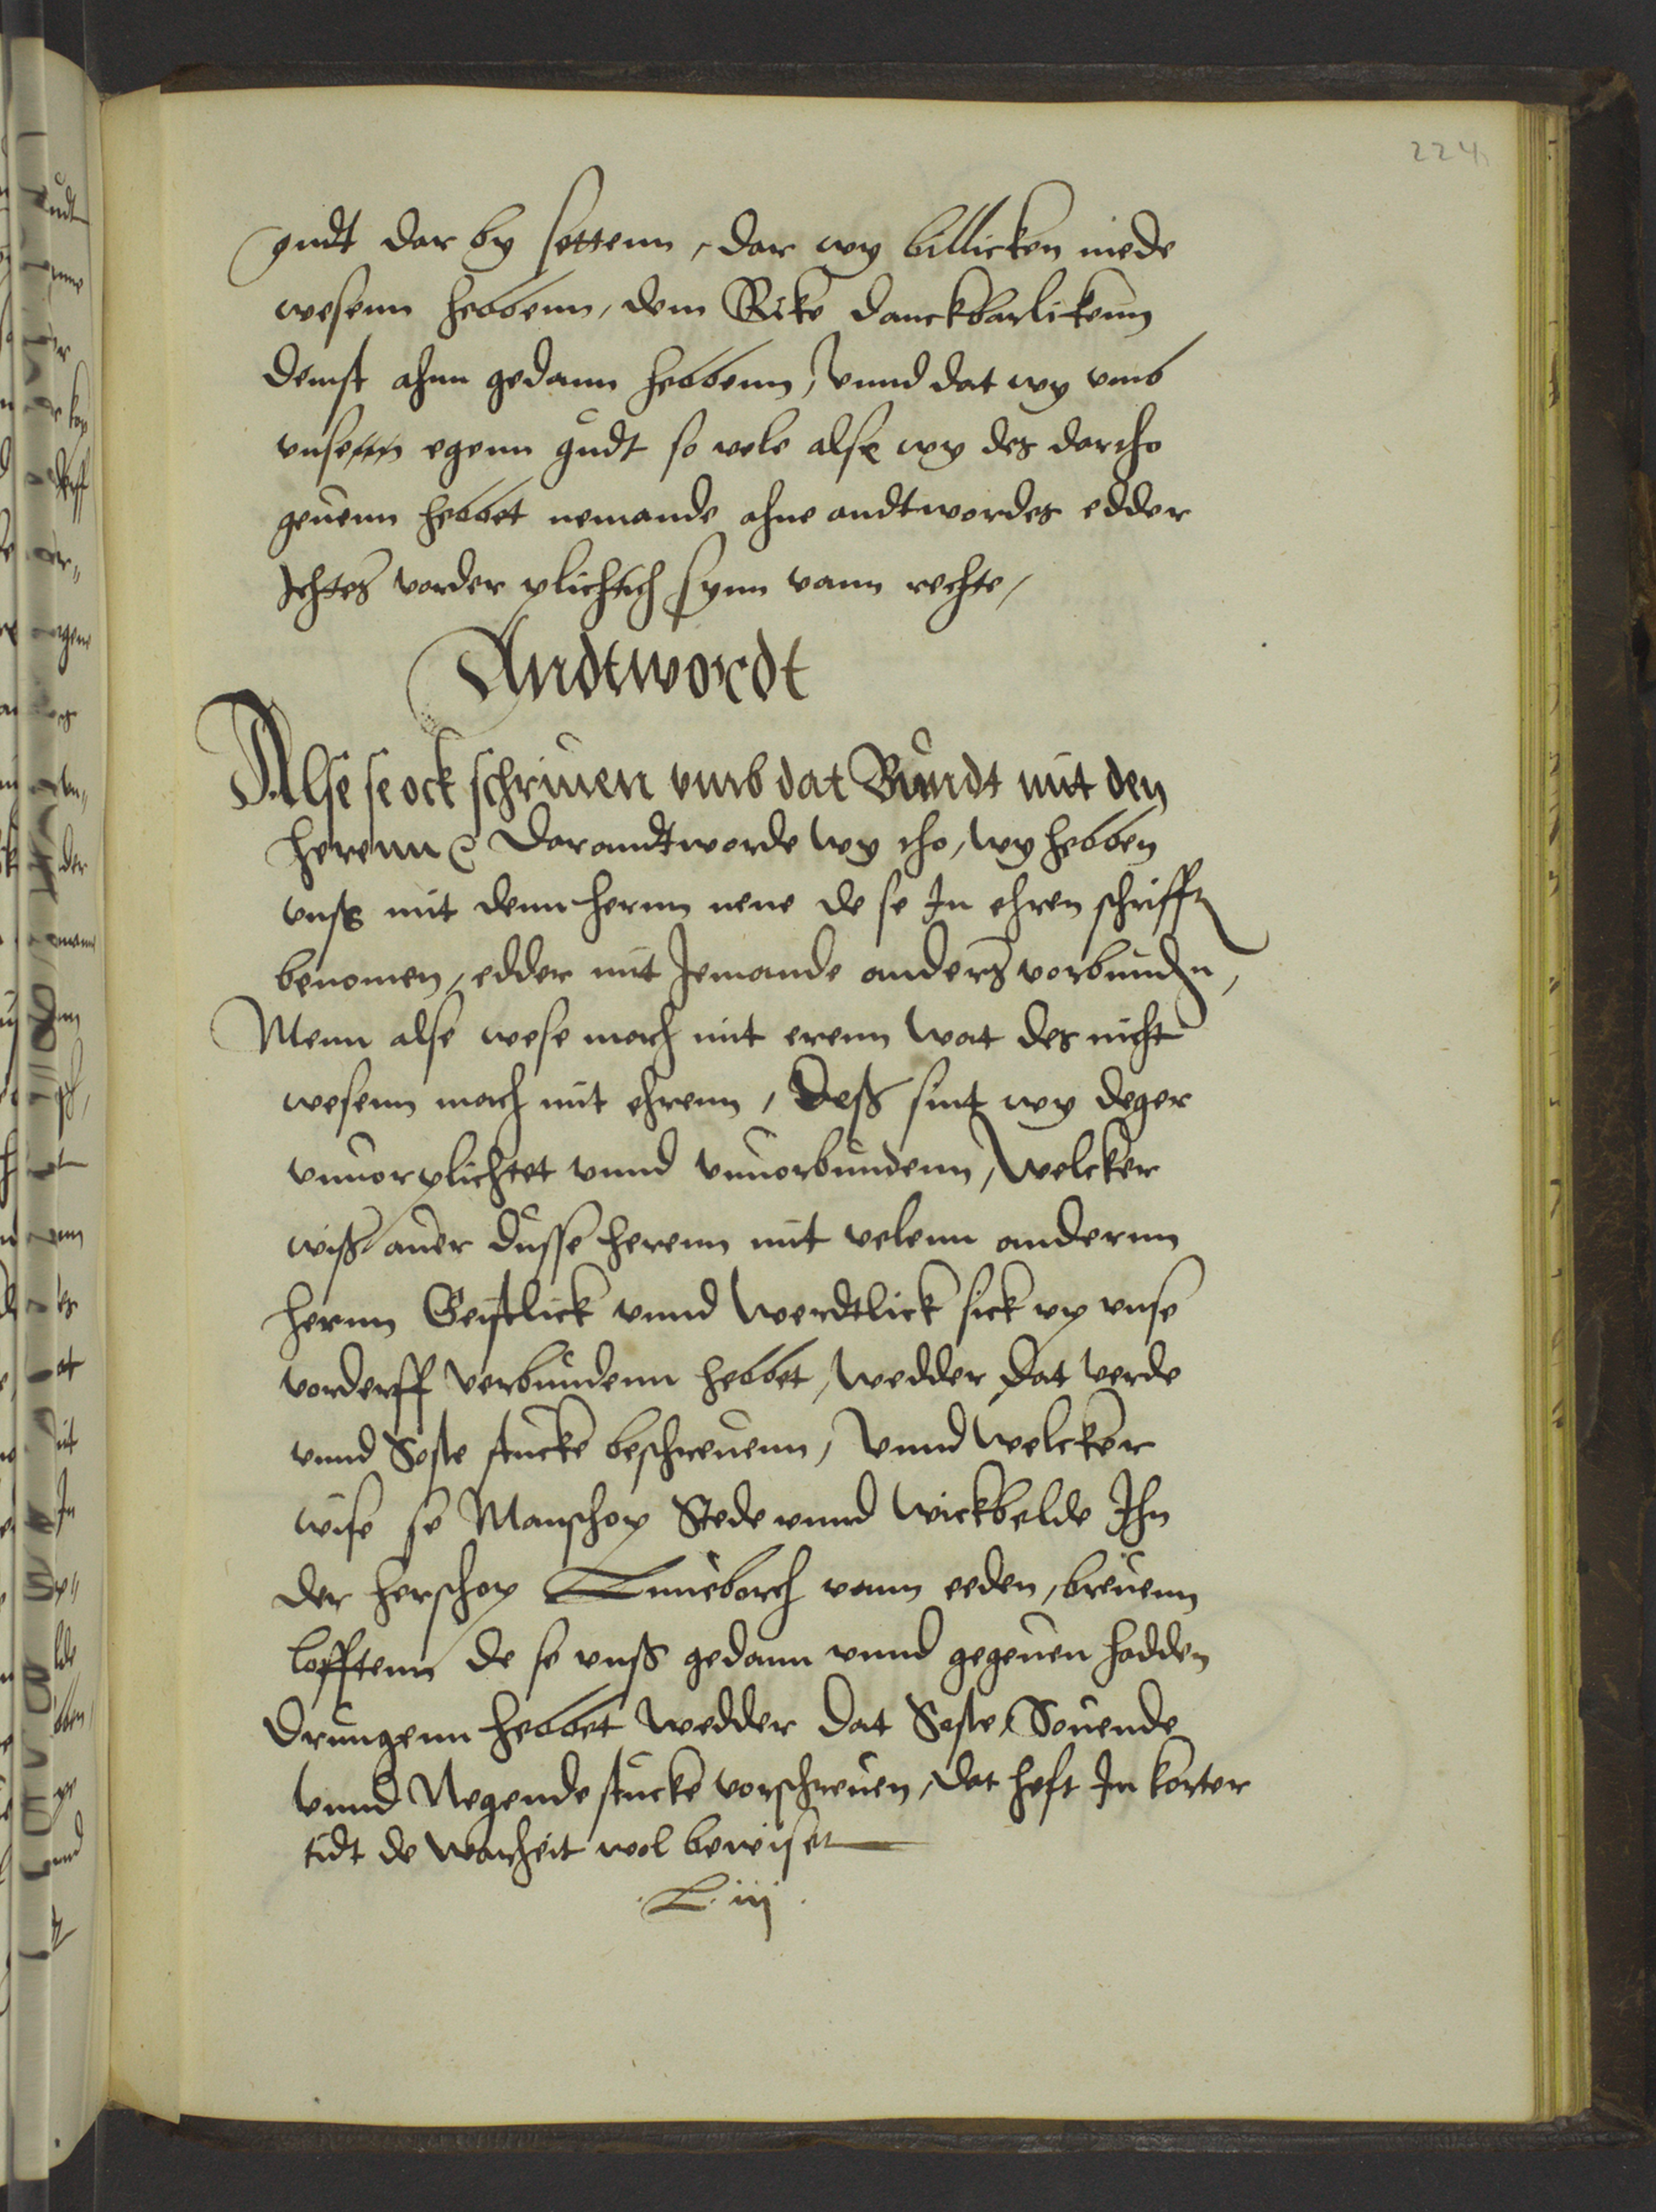 224
gudt dar by settenn, dar wy billicken mede
wesenn hebbenn, dem Rike danckbarlikenn
denst ahnn gedann hebbenn, vnnd dat wy vmb
vnsenn egenn gudt so vele alse wy des dartho
geuenn hebbet nemande ahne andtwordes edder
Ichtes vorder plichtich synn vann rechte,
Andtwordt
Alse se ock schriuen vmb dat Bundt mit den
herenn &c Dar andtworde wy tho, wy hebben
vnß mit denn hernn nene de se In ehren schrifftn
benomen, edder mit Jemande anders vorbundn,
Menn alse wese mach mit erenn wat des nicht
wesenn mach mit ehrenn, Deß sint wy deger
vnuorplichtet vnnd vnuorbundenn, Welcker
wiß auer dusse herenn mit velenn andernn
hernn Geistlick vnnd Werdtlick sick vp vnse
vorderff verbundenn hebbet, Wedder dat verde
vnnd Soste stucke beschreuenn, Vnnd Welcker
wise se Manschop Stede vnnd Wickbelde Ihn
der herschop Luneborch vann eeden, breuenn
lofftenn de se vnß gedann vnnd gegeuen hadden
Drungenn hebbet Wedder dat Soste, Souende
Vnnd Negende stucke vorschreuen, Dat heft In korter
tidt de Warheit wol bewiset
.L. iij.